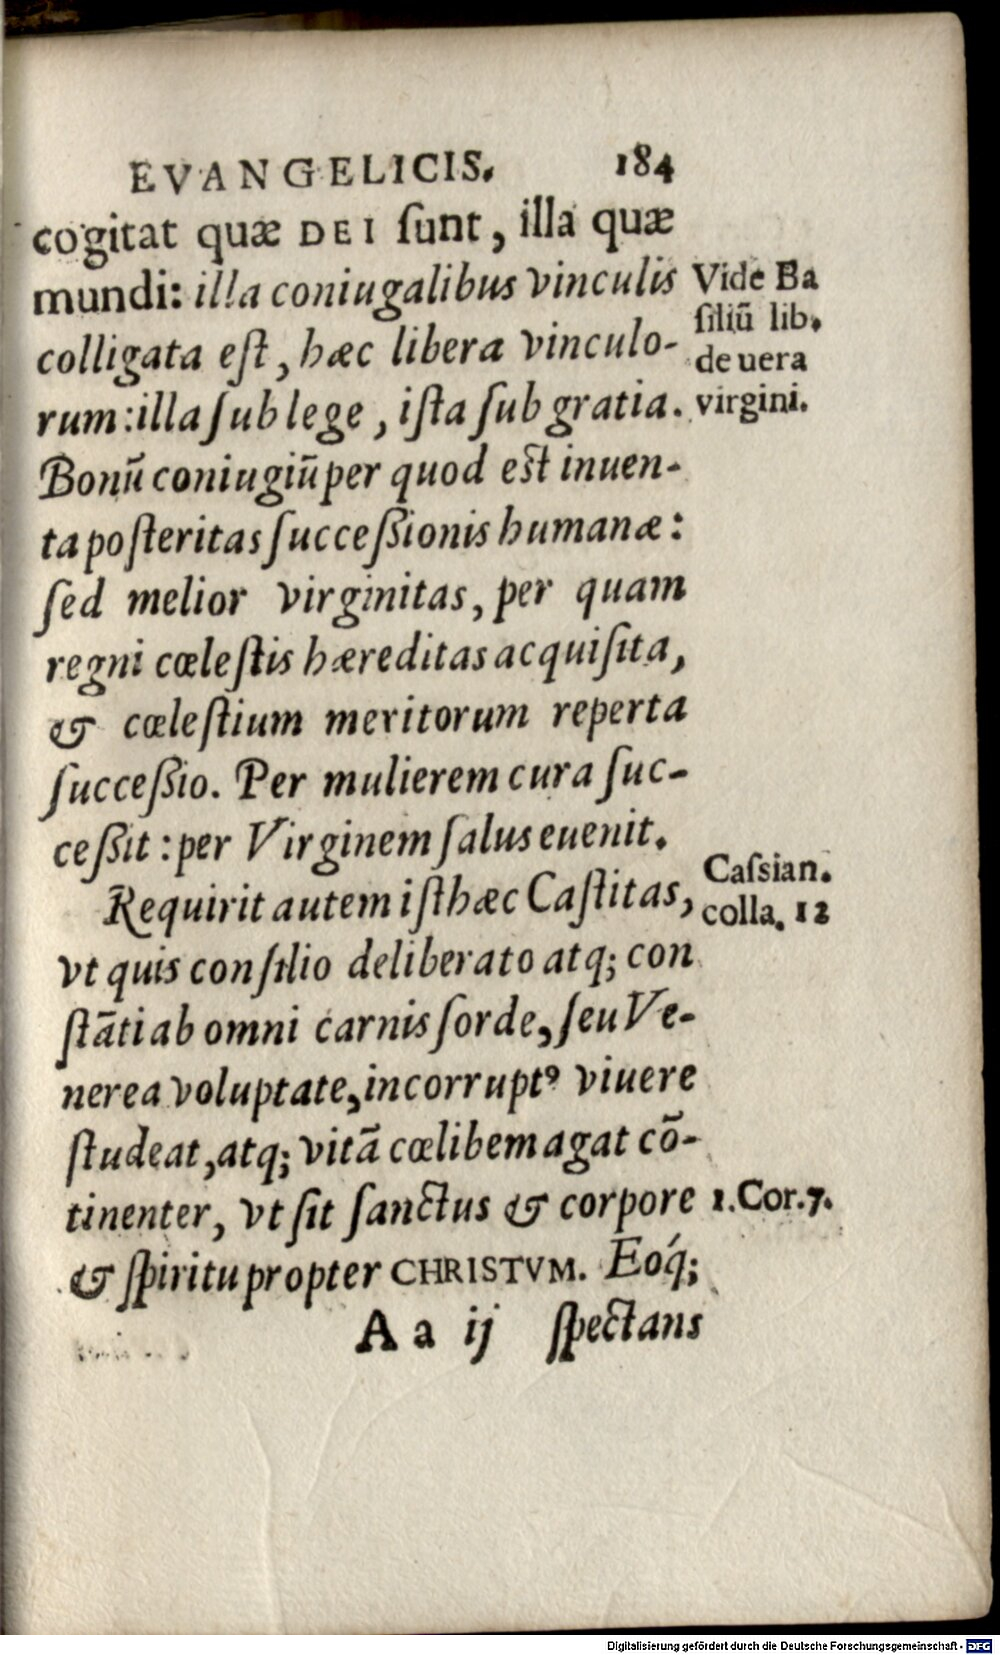 EVANGELICIS. 184
cogitat quæ DEI ſunt, illa quæ
mundi: illa coniugalibus vinculis
colligata eſt, hæc libera vinculo-
rum: illa ſub lege, iſta ſub gratia.
Vide Ba
ſiliũ lib.
de uera
virgini.
Bonũ coniugiũ per quod eſt inuen-
ta poſteritas ſucceſsionis humanæ:
ſed melior virginitas, per quam
regni cœleſtis hæreditas acquiſita,
& cœleſtium meritorum reperta
ſucceſsio. Per mulierem cura ſuc-
ceſsit: per Virginem ſalus euenit.
Requirit autem iſthæc Caſtitas,
Caſsian.
colla. 12
vt quis conſilio deliberato atq; con
ſtãti ab omni carnis ſorde, ſeu Ve-
nerea voluptate, incorruptꝰ viuere
ſtudeat, atq; vitã cœlibem agat cõ-
tinenter, vt ſit ſanctus & corpore
1. Cor. 7.
& ſpiritu propter CHRISTVM. Eóq;
A a ij ſpectans
Digitalisierung gefördert durch die Deutsche Forschungsgemeinschaft - DFG